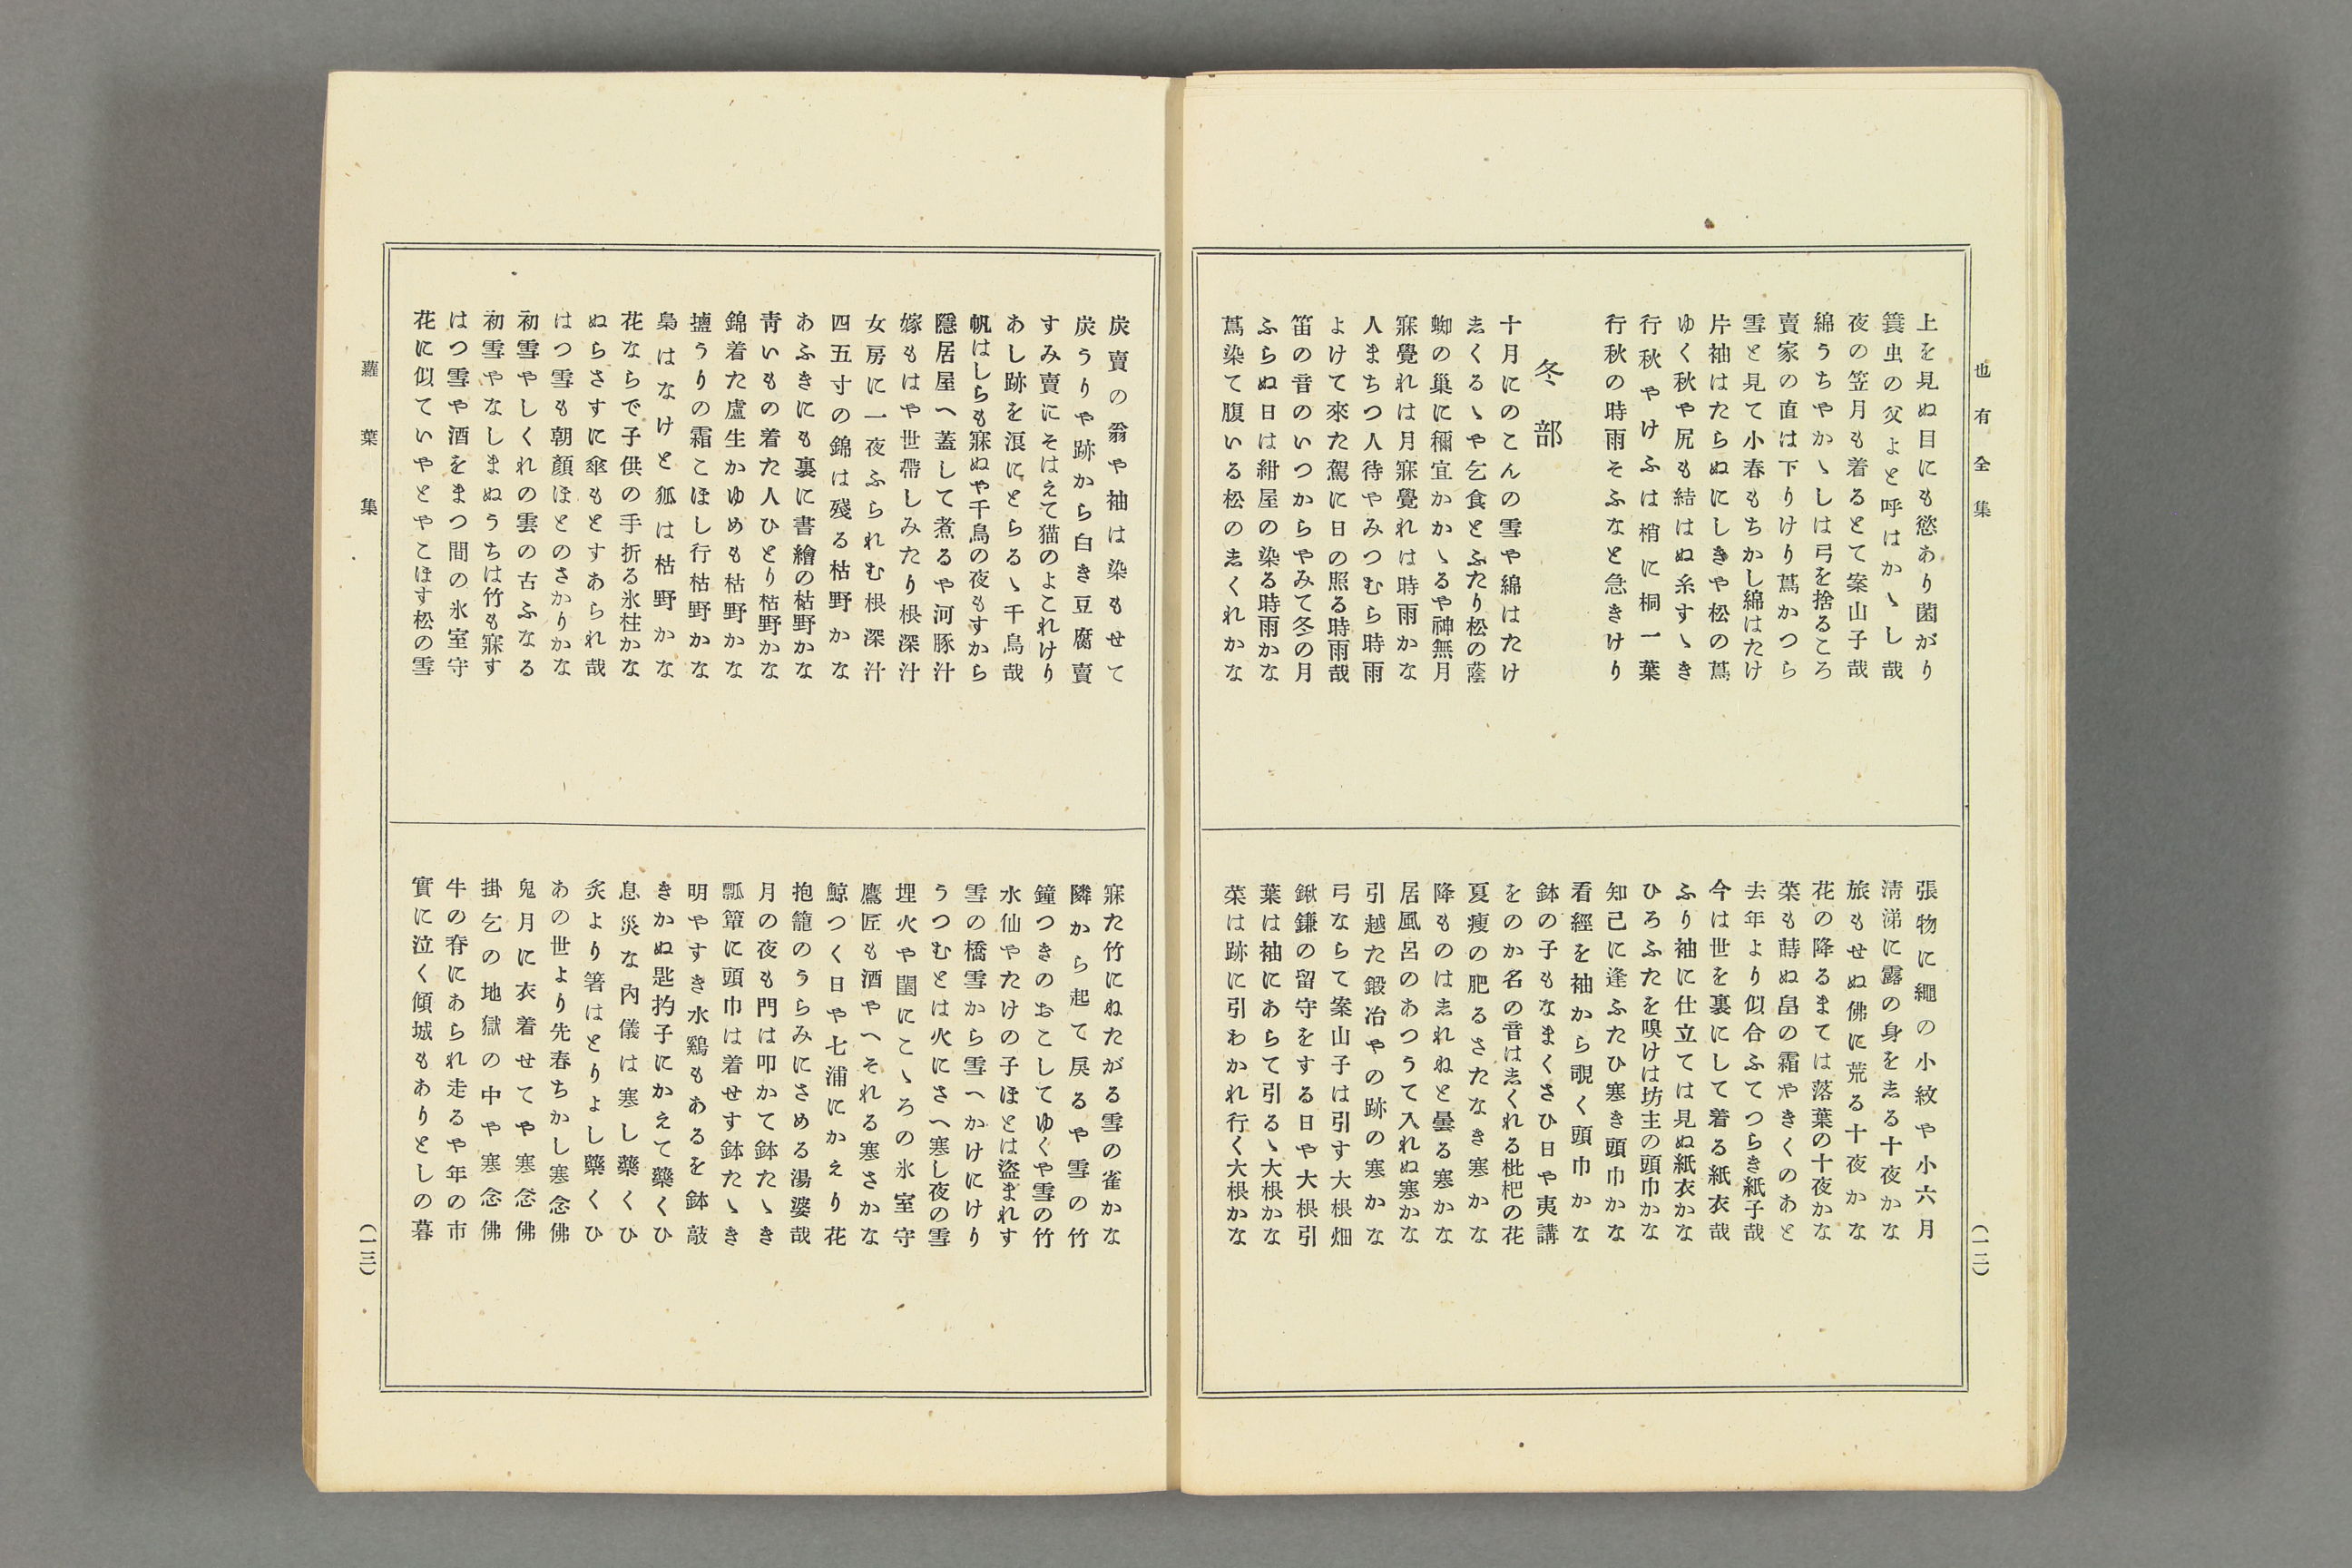 也有全集
上を見ぬ目にも慾あり菌がり
簔虫の父よと呼はかヽし哉
夜の笠月も着るとて案山子哉
綿うちやかヽしは弓を捨るころ
賣家の直は下りけり蔦かつら
雪と見て小春もちかし綿はたけ
片袖はたらぬにしきや松の蔦
ゆく秋や尻も結はぬ糸すヽき
行秋やけふは梢に桐一葉
行秋の時雨そふなと急きけり
冬部
十月にのこんの雪や綿はたけ
志くるヽや乞食とふたり松の蔭
蜘の巢に禰宜かかヽるや神無月
寐覺れは月寐覺れは時雨かな
人まちつ人待やみつむら時雨
よけて來た駕に日の照る時雨哉
笛の音のいつからやみて冬の月
ふらぬ日は紺屋の染る時雨かな
蔦染て腹いる松の志くれかな
張物に繩の小紋や小六月
淸涕に露の身を志る十夜かな
旅もせぬ佛に荒る十夜かな
花の降るまては落葉の十夜かな
菜も蒔ぬ畠の霜やきくのあと
去年より似合ふてつらき紙子哉
今は世を裏にして着る紙衣哉
ふり袖に仕立ては見ぬ紙衣かな
ひろふたを嗅けは坊主の頭巾かな
知己に逢ふたひ寒き頭巾かな
看經を袖から覗く頭巾かな
鉢の子もなまくさひ日や夷講
をのか名の音は志くれる枇杷の花
夏瘦の肥るさたなき寒かな
降ものは志れねと曇る寒かな
居風呂のあつうて入れぬ寒かな
引越た鍛冶やの跡の寒かな
弓ならて案山子は引す大根畑
鍬鎌の留守をする日や大根引
葉は袖にあらて引るヽ大根かな
菜は跡に引わかれ行く大根かな
(一二)
炭賣の翁や袖は染もせて
炭うりや跡から白き豆腐賣
すみ賣にそはえて猫のよこれけり
あし跡を浪にとらるヽ千鳥哉
帆はしらも寐ぬや千鳥の夜もすから
隱居屋へ蓋して煮るや河豚汁
嫁もはや世帶しみたり根深汁
女房に一夜ふられむ根深汁
四五寸の錦は殘る枯野かな
あふきにも裏に書繪の枯野かな
靑いもの着た人ひとり枯野かな
錦着た盧生かゆめも枯野かな
壚うりの霜こほし行枯野かな
梟はなけと狐は枯野かな
花ならで子供の手折る氷柱かな
ぬらさすに傘もとすあられ哉
はつ雪も朝顏ほとのさかりかな
初雪やしくれの雲の古ふなる
初雪やなしまぬうちは竹も寐す
はつ雪や酒をまつ間の氷室守
花に似ていやとやこほす松の雪
寐た竹にねたがる雪の雀かな
隣から起て戾るや雪の竹
鐘つきのおこしてゆくや雪の竹
水仙やたけの子ほとは盜まれす
雪の橋雪から雪へかけにけり
うつむとは火にさへ寒し夜の雪
埋火や閨にこヽろの氷室守
鷹匠も酒やへそれる寒さかな
鯨つく日や七浦にかえり花
抱籠のうらみにさめる湯婆哉
月の夜も門は叩かて鉢たヽき
瓢簞に頭巾は着せす鉢たヽき
明やすき水鷄もあるを鉢敲
きかぬ匙杓子にかえて藥くひ
息災な內儀は寒し藥くひ
炙より箸はとりよし藥くひ
あの世より先春ちかし寒念佛
鬼月に衣着せてや寒念佛
掛乞の地獄の中や寒念佛
牛の脊にあられ走るや年の市
實に泣く傾城もありとしの暮
蘿葉集
(一三)